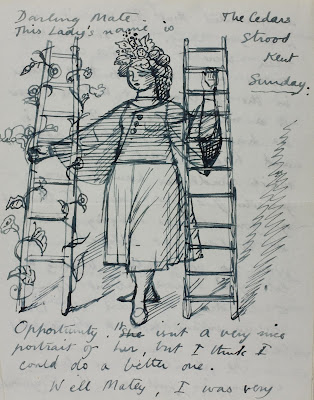 Darling Mate.
This Lady's name is
The Cedars
Strood
Kent
Sunday.
Opportunity. She isn't a very nice
portrait of her, but I think I
could do a better one.
Well Matey, I was very